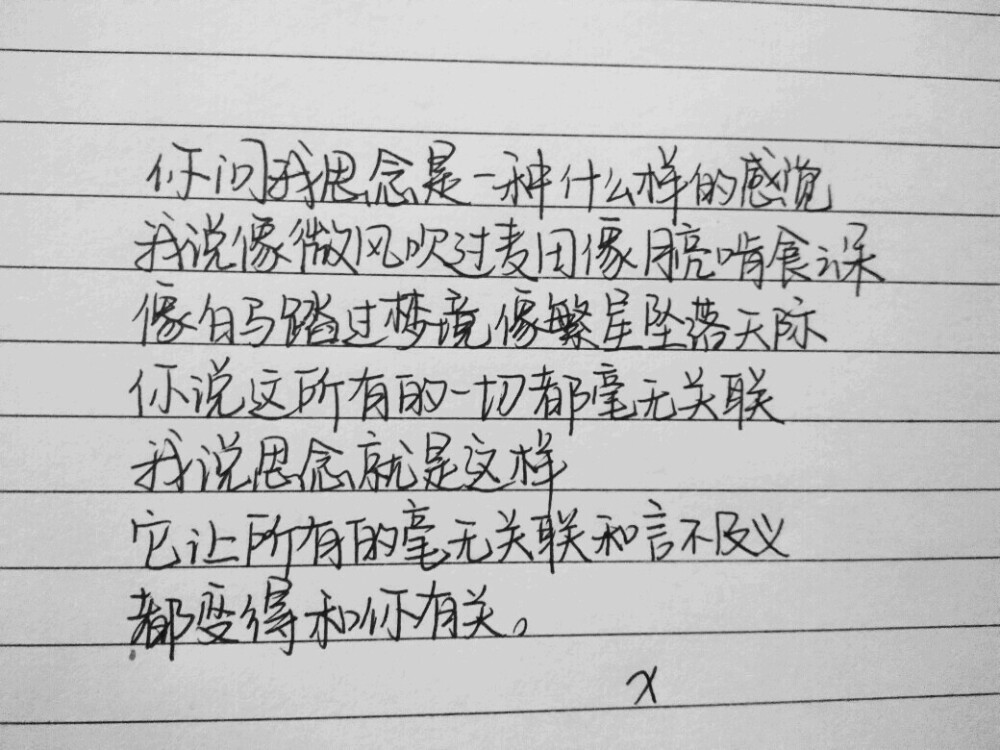 你问我思念是一种什么样的感觉
我说像微风吹过麦田像月亮啃食深
像白马踏过梦境像繁星坠落天际
你说这所有的一切都毫无关联
我说思念就是这样
它让所有的毫无关联和言不及义
都变得和你有关。
x